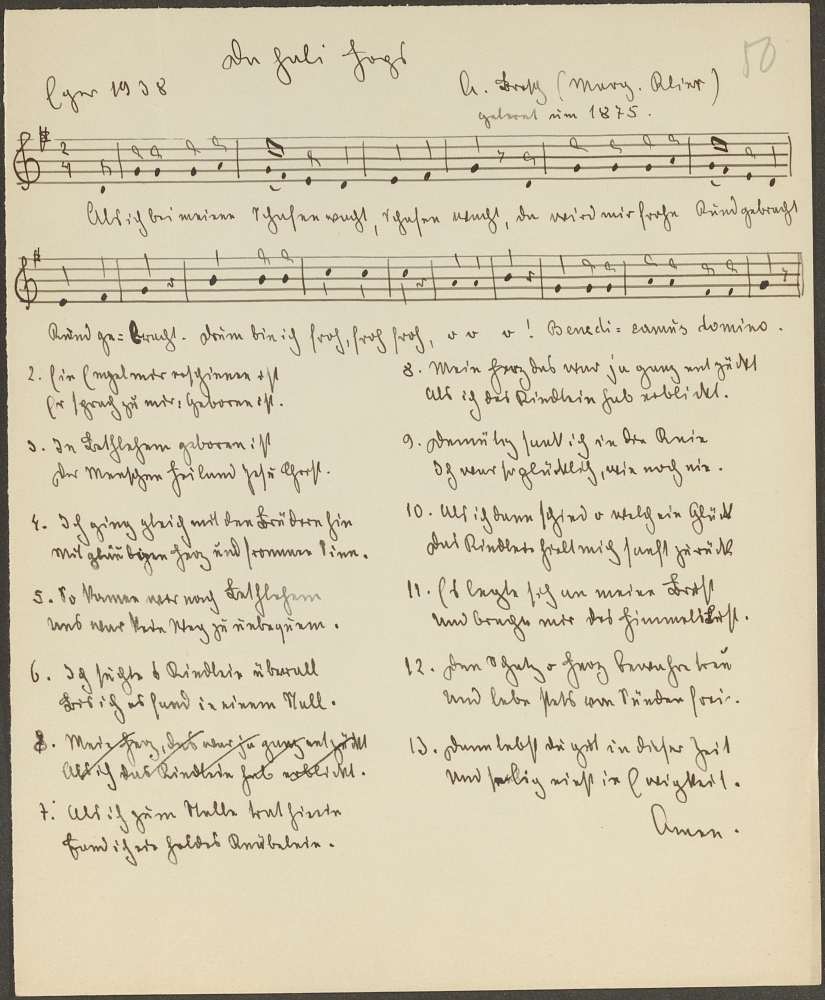 50
Eger 1938
A. Brosch (Marg. Klier)
gelernt um 1875.
2 4
Als ich bei meinen Schafen wacht, Schafen wacht, da wird mir frohe Kund gebracht
Kund ge= bracht. Drum bin ich froh, froh froh, o o o! Benedi= camus domino.
2. Ein Engel mir erschienen ist
Er sprach zu mir: Geboren ist.
3. In Bethlehem geboren ist
Der Menschen Heiland Jesu Christ.
4. Ich ging gleich mit den Brüdern hin
Mit gläubigem Herz und frommen Sinn.
5. So kamen wir nach Bethlehem
Uns war kein Weg zu unbequem.
6. Ich suchte 's Kindlein überall
Bis ich es fand in einem Stall.
8. Mein Herz, das war ja ganz entzückt
Als ich das Kindlein hab erblickt.
7. Als ich zum Stalle trat hinein
Fand ich ein holdes Knäbelein.
8. Mein Herz das war ja ganz entzückt
Als ich das Kindlein hab erblickt.
9. Demütig sank ich in die Knie
Ich war so glücklich, wie noch nie.
10. Als ich dann schied o welch ein Glück
Das Kindlein hielt mich sanft zurück
11. Es legte sich an meine Brust
Und brachte mir des Himmels Lust.
12. Den Schatz o Herz bewahre treu
Und lebe stets von Sünden frei.
13. Dann lebst du gut in dieser Zeit
Und selig einst in Ewigkeit.
Amen.